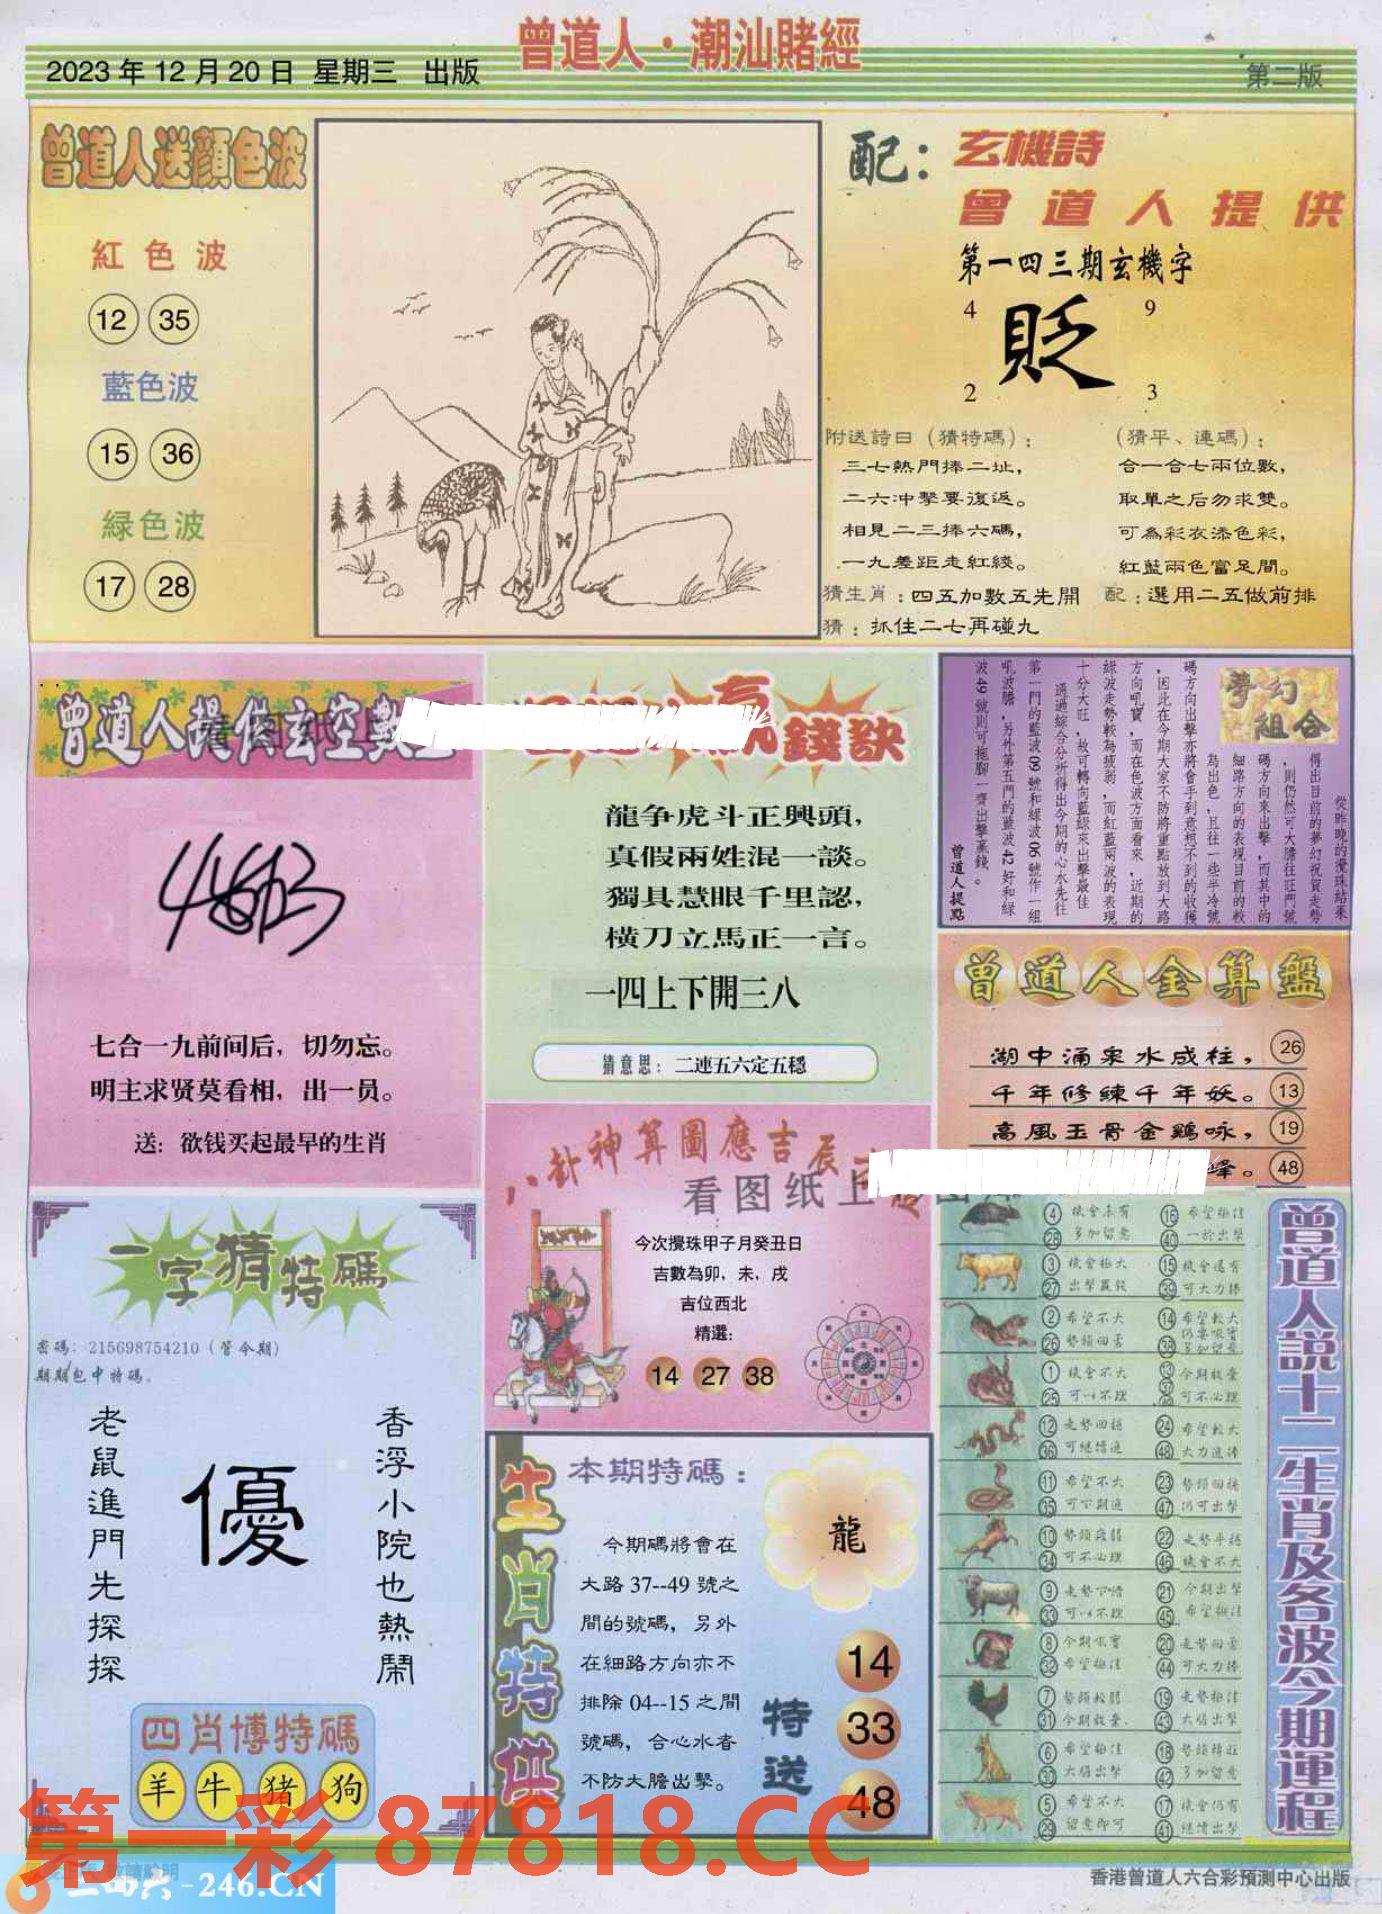 曾道人·潮汕賭經
2023年12月20日 星期三 出版
第二版
曾道人送顔色波
紅色波
12 35
藍色波
15 36
緑色波
17 28
配：玄機詩
曾道人提供
第一四三期玄機字
4 9
貶
2 3
附送詩曰（猜特碼）：
三七熱門捧二址，
二六冲擊要復返。
相見二三捧六碼，
一九差距走紅綫。
猜生肖：四五加數五先開
猜：抓住二七再碰九
（猜平、連碼）：
合一合七兩位數，
取單之后勿求雙。
可為彩衣添色彩，
紅藍兩色富足間。
配：選用二五做前排
曾道人提供玄空數
七合一九前间后，切勿忘。
明主求贤莫看相，出一员。
送：欲钱买起最早的生肖
錢訣
龍争虎斗正興頭，
真假兩姓混一談。
獨具慧眼千里認，
橫刀立馬正一言。
一四上下開三八
猜意思：二連五六定五穩
夢幻組合
從昨晚的攪珠結果
得出目前的夢幻祝賀走勢
，則仍然可大膽往旺門號
碼方向來出擊，而其中的
細路方向的表現目前的較
為出色，且往一些半冷號
碼方向出擊亦將會手到意想不到的收獲
，因此在今期大家不防將重點放到大路
方向吼寶，而在色波方面看來，近期的
綠波走勢較為疲弱，而紅藍兩波的表現
十分大旺，故可轉向藍綠來出擊最佳
通過綜合分析得出今期的心水先往
第一門的藍波09號和綠波06號作一組
吼波膽，另外第五門的藍波42好和綠
波49號則可拖腳一齊出擊贏錢。
曾道人提點
曾道人金算盤
湖中涌泉水成柱， 26
千年修練千年妖。 13
高風玉骨金鷄咏， 19
峰。 48
八卦神算圖應吉辰
看图纸上
今次攪珠甲子月癸丑日
吉數為卯，未，戌
吉位西北
精選：
14 27 38
一字猜特碼
密碼：215698754210（管今期）
期期包中特碼。
香浮小院也熱鬧
優
老鼠進門先探探
四肖博特碼
羊 牛 猪 狗
生肖特供
本期特碼：
龍
今期碼將會在
大路37--49號之
間的號碼，另外
在細路方向亦不
排除04--15之間
號碼，合心水者
不防大膽出擊。
特送
14
33
48
曾道人説十二生肖及各波今期運程
4 機會未有 16 希望極佳
28 多加留意 40 一於出擊
3 機會極大 15 機會還有
27 出擊贏錢 39 可大力捧
2 希望不大 14 希望較大
26 勢頭回落 38
1 機會不大 今期放棄
25 可以不理 可不必理
12 走勢回穩 24 希望較大
36 可继續追 48 大力追捧
11 希望不大 23 勢頭回穩
35 47 仍可出擊
10 勢頭疲弱 22 走勢平穩
34 可不必理 46 機會不大
9 21 今期出擊
33 可以不理 45 希望極佳
8 今期吼寶 20
32 希望極佳 44 可大力捧
7 勢頭較弱 19 走勢極佳
31 今期放棄 43 大膽出擊
6 希望極佳 18
30 大膽出擊 42 多加留意
5 希望不大 17 機會仍有
29 留意即可 41 继續出擊
第一彩 87818.CC
二四六-246.CN
香港曾道人六合彩預測中心出版